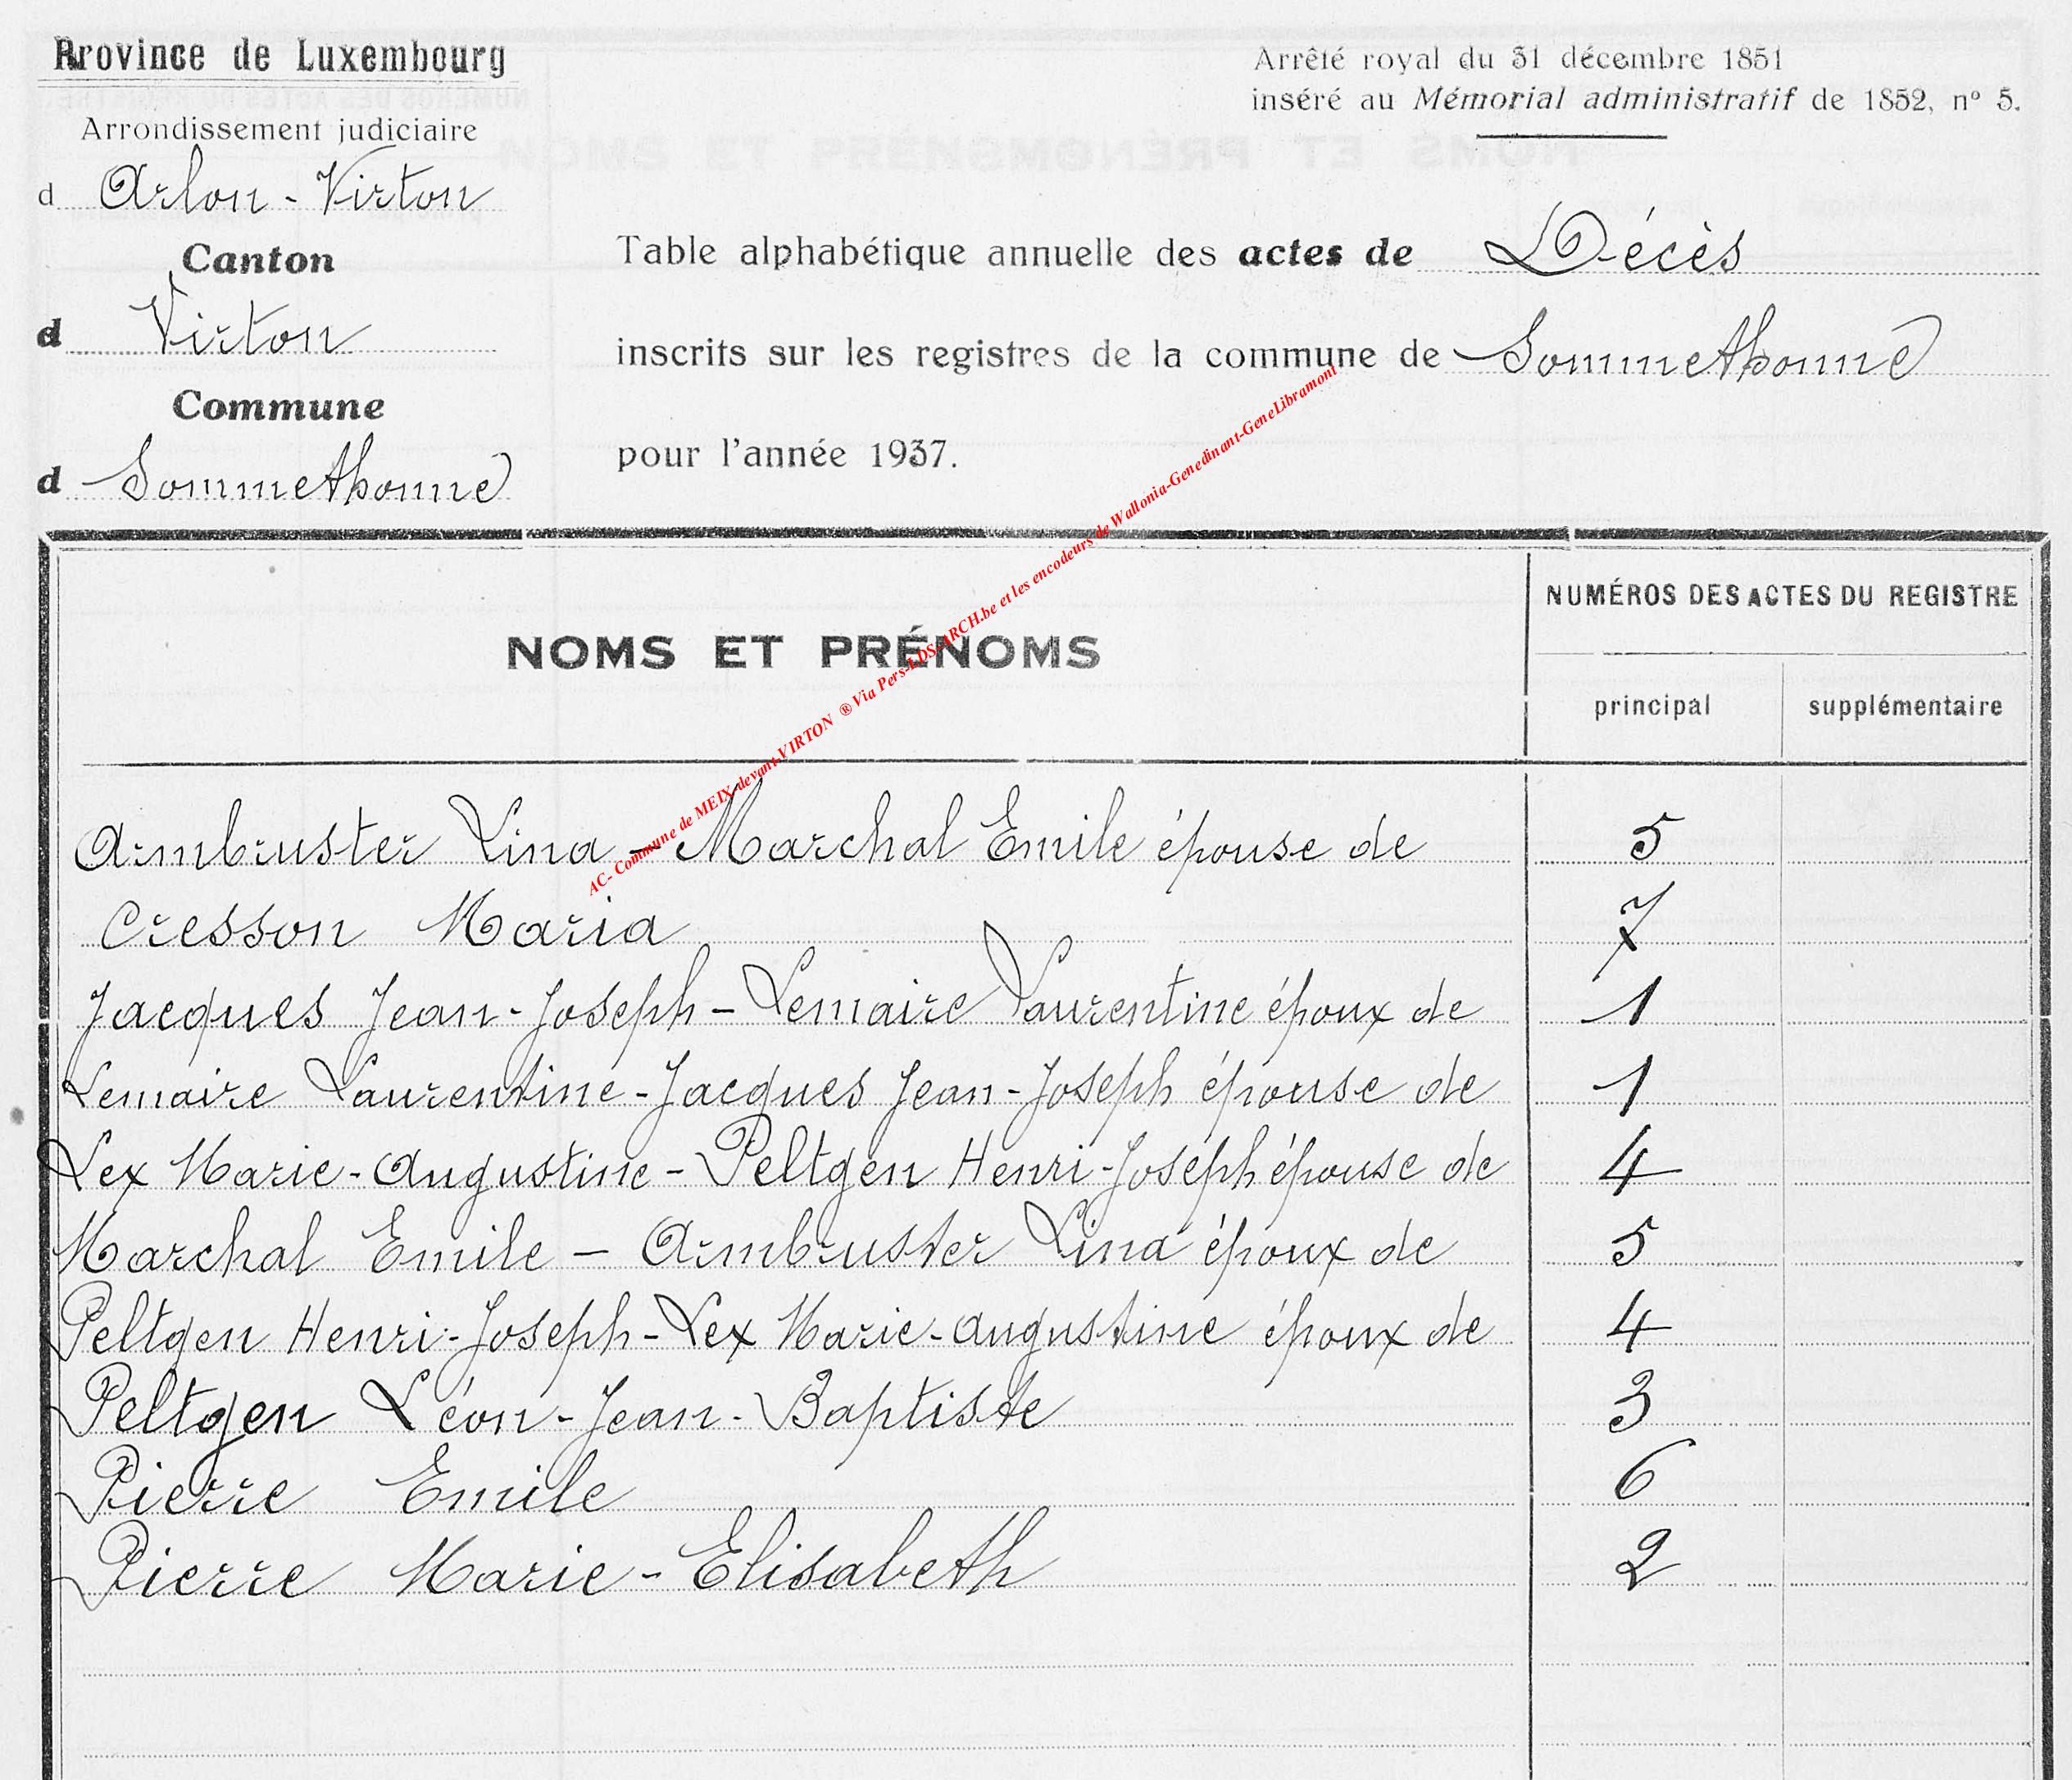 Province de Luxembourg
Arrondissement judiciaire
d Arlon - Virton
Canton
d Virton
Commune
d Sommethonne
Arrêté royal du 31 décembre 1851
inséré au Mémorial administratif de 1852, n° 5.
Table alphabétique annuelle des actes de Décès
inscrits sur les registres de la commune de Sommethonne
pour l'année 1937.
NOMS ET PRÉNOMS
NUMÉROS DES ACTES DU REGISTRE
principal supplémentaire
Armbruster Lina - Marchal Emile épouse de 5
Cresson Maria 7
Jacques Jean-Joseph - Lemaire Laurentine époux de 1
Lemaire Laurentine - Jacques Jean-Joseph épouse de 1
Lex Marie-Augustine - Peltgen Henri-Joseph épouse de 4
Marchal Emile - Armbruster Lina époux de 5
Peltgen Henri-Joseph - Lex Marie-Augustine époux de 4
Peltgen Léon-Jean-Baptiste 3
Pierre Emile 6
Pierre Marie-Elisabeth 2
AC- Commune de MEIX-devant-VIRTON ® Via Pers-LDS-ARCH.be et les encodeurs de Wallonia-Genedinant-GeneLibramont